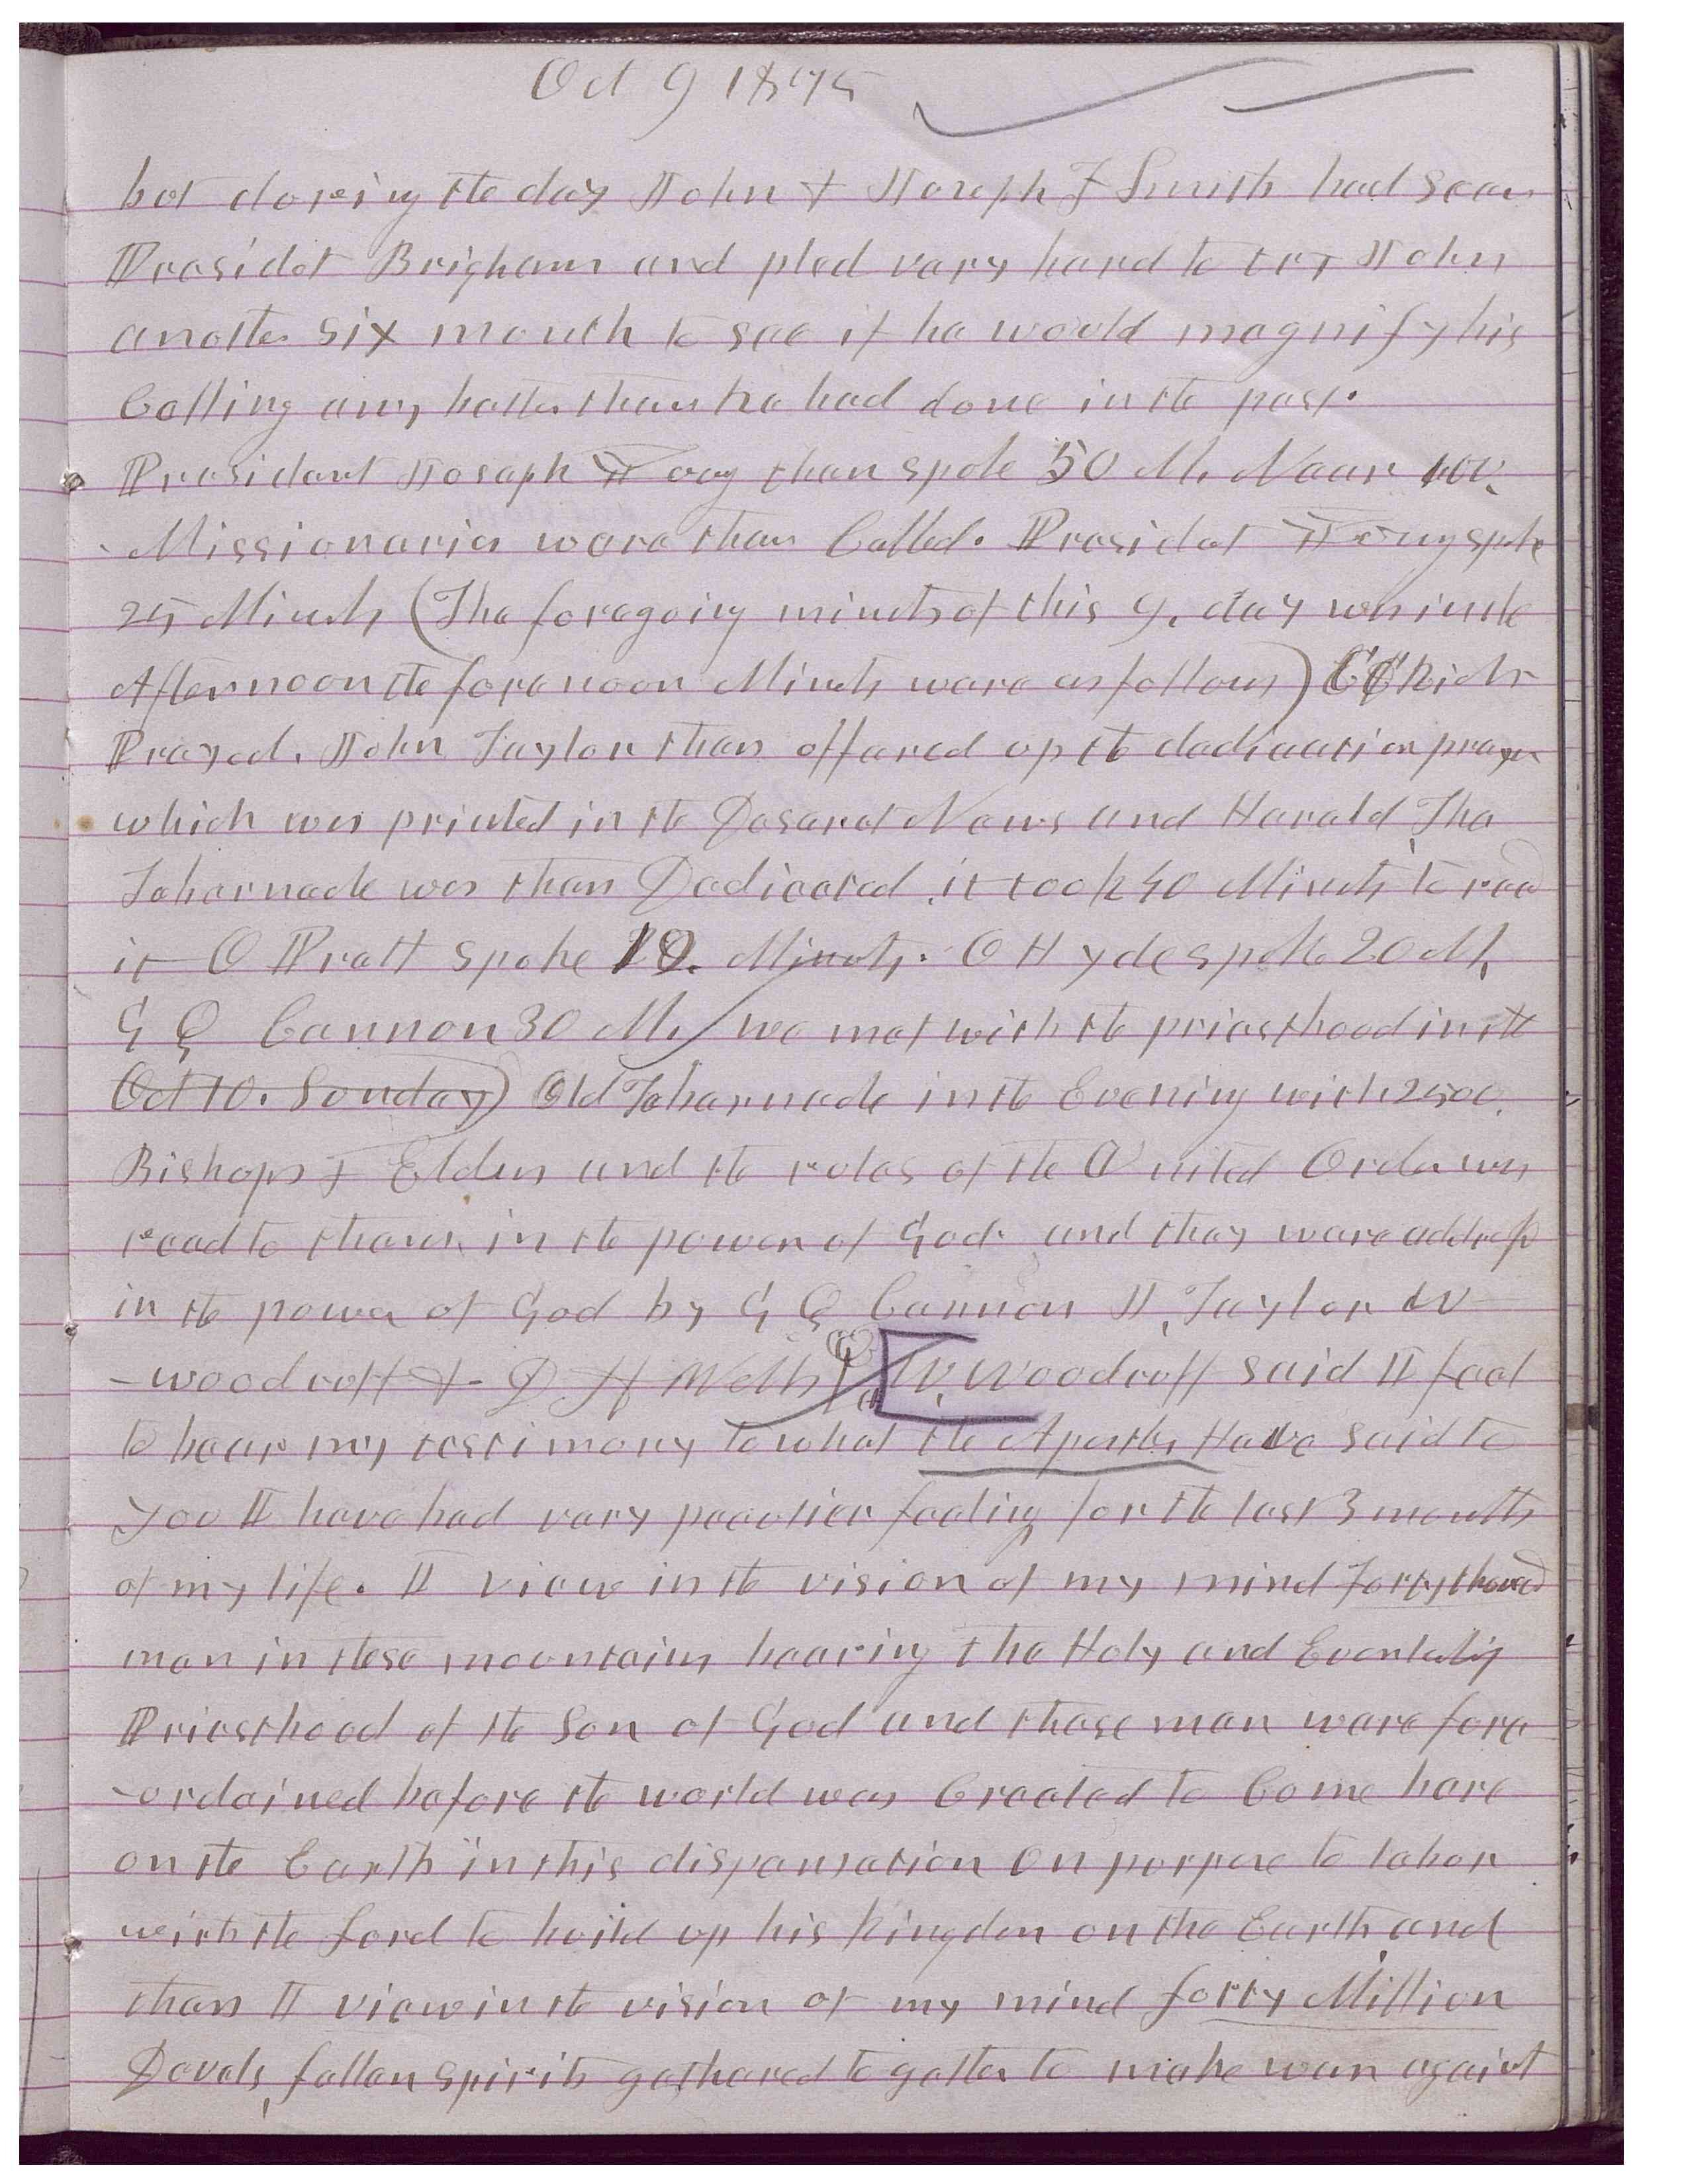 Oct 9 1875
bot doreing the day John & Joseph F Smith had seen
Presidet Brigham and pled very hard to try John
another six month to see if he would magnify his
Calling any better than he had done in the past.
President Joseph Young then spoke 50 M. Near 100.
Missionaries were then Called. Presidet Young spoke
25 Minuts (The foregoing minuts of this 9. day was in the
Afternoon the forenoon Minuts were as follows) C C Rich
Prayed. John Taylor then offered up the dedication prayer
which was printed in the Deseret News and Herald The
Tabernacle was then Dedicated it took 40 Minuts to read
it O Pratt spoke 10. Minuts. O Hyde spoke 20 M,
G Q Cannon 30 M. / we met with the priesthood in the
Oct 10. Sonday) Old Tabernacle in the Evening with 2500.
Bishops & Elders and the roles of the United Order was
read to them in the power of God. and they were addresd
in the power of God by G Q Cannon J, Taylor W
-woodruff & D H Wells W. Woodruff said I feel
to bear my testimony to what the Apostles Have said to
you I have had very peculier feeling for the last 3 months
of my life. I view in the vision of my mind forty thousand
men in these mountains bearing the Holy and Everlasting
Priesthood of the Son of God and those men were fore
-ordained before the world was Created to Come here
on the Earth in this dispensation on porpose to labor
with the Lord to boild up his kingdom on the Earth and
then I view in the vision of my mind forty Million
Devels, fallen spirits gathered together to make war against